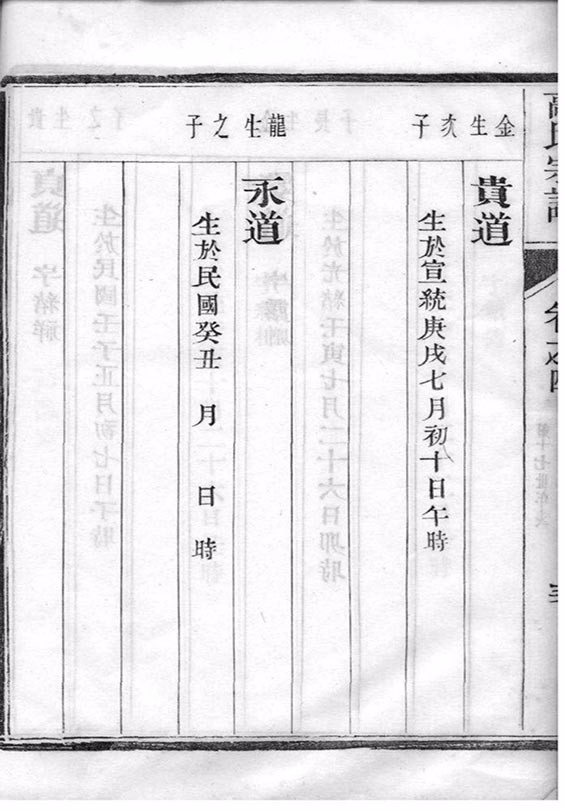 高氏宗譜
卷之四
金生次子
貴道
生於宣統庚戌七月初十日午時
龍生之子
永道
生於民國癸丑 月 日 時